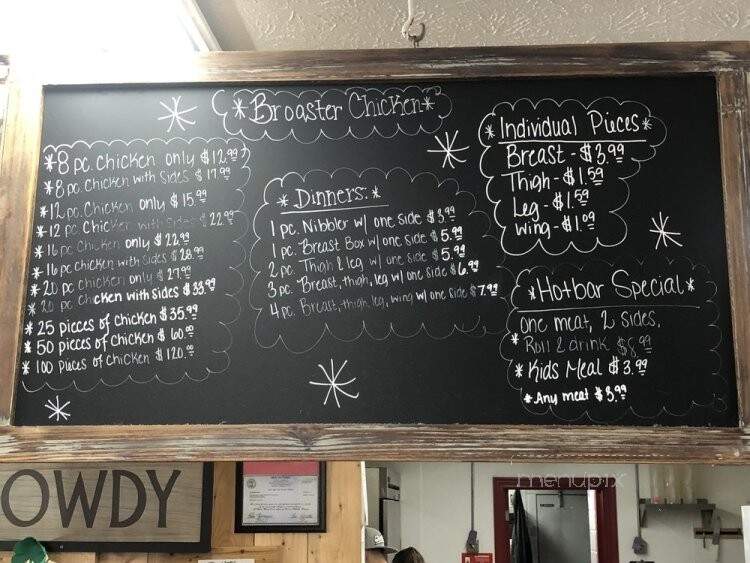 *Broaster Chicken*
*8 pc. Chicken only $12.99
*8 pc. Chicken with Sides $17.99
*12 pc. Chicken only $15.99
*12 pc Chicken with Sides $22.99
*16 pc Chicken only $22.99
*16 pc chicken with sides $28.99
*20 pc chicken only $27.99
*20 pc chicken with sides $33.99
*25 pieces of chicken $35.99
*50 pieces of chicken $60.00
*100 pieces of chicken $120.00
*Dinners:*
1 pc. Nibbler w/ one side $3.99
1 pc. Breast Box w/ one side $5.99
2 pc. Thigh & leg w/ one side $5.99
3 pc. Breast, thigh, leg w/ one side $6.99
4 pc. Breast, thigh, leg, wing w/ one side $7.99
*Individual Pieces*
Breast - $3.99
Thigh - $1.59
Leg - $1.59
Wing - $1.09
*Hotbar Special*
one meat, 2 sides,
*Roll & drink $8.99
*Kids Meal $3.99
*Any meat $3.99
OWDY
menupix